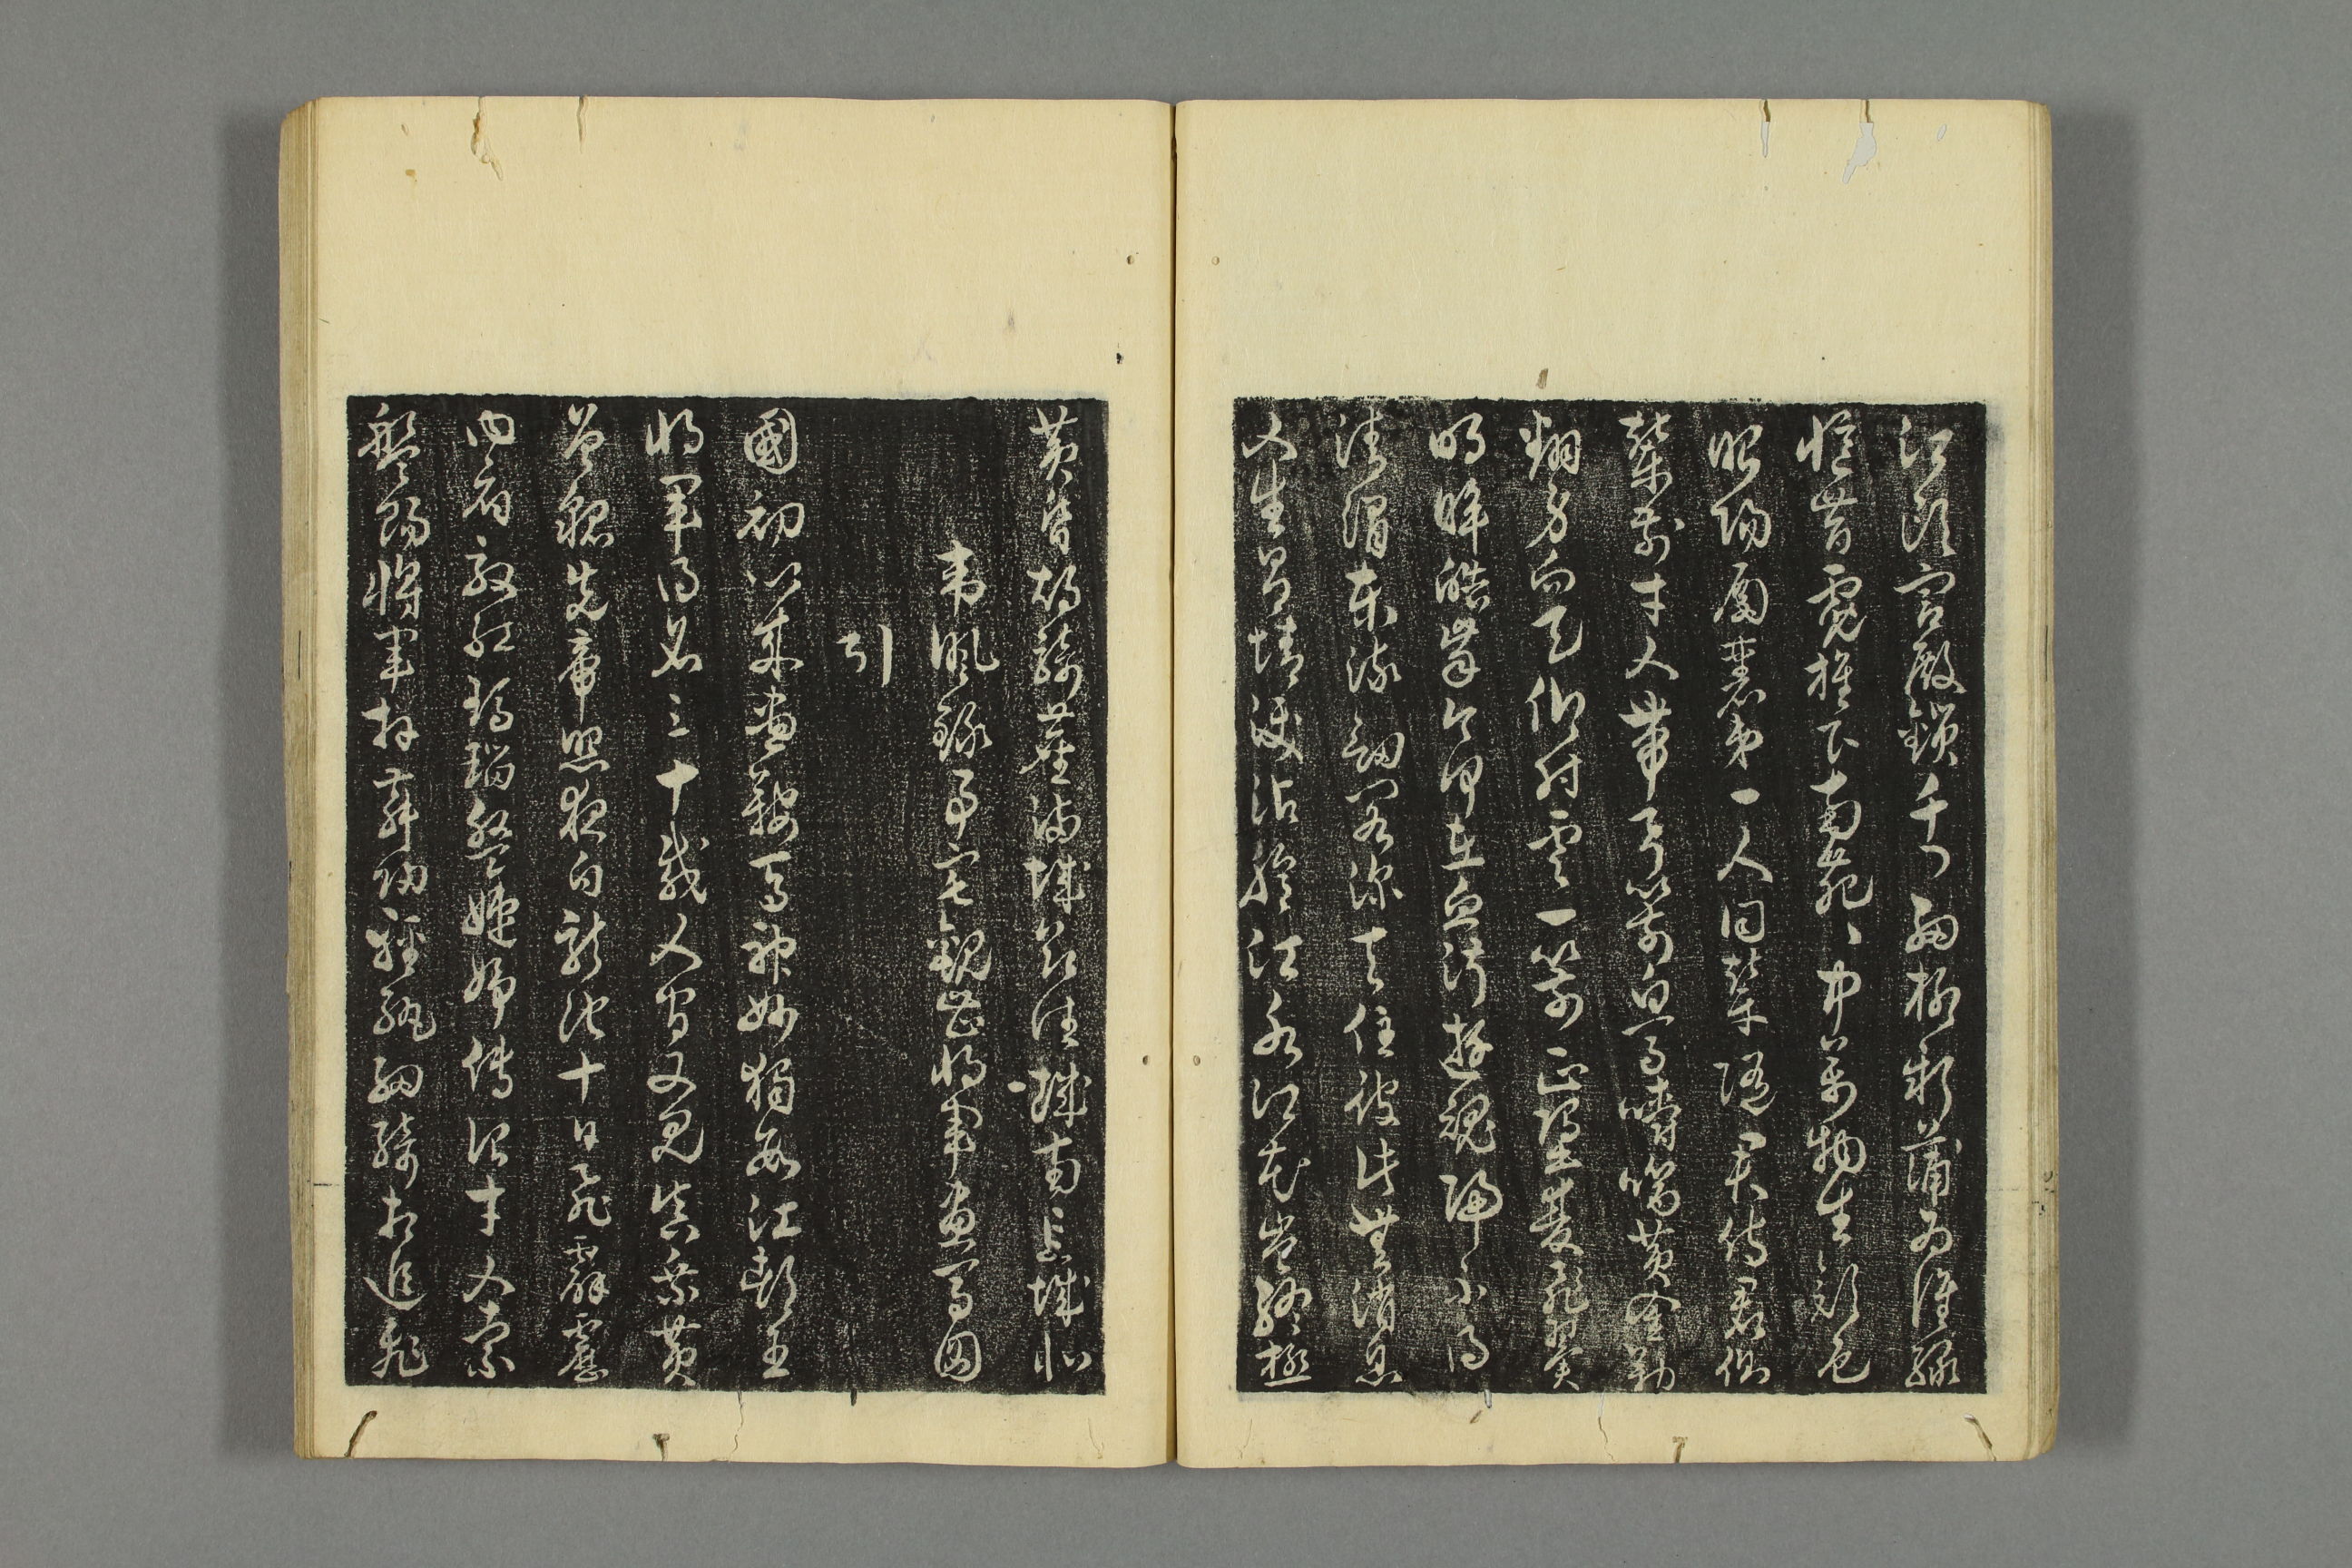 江頭宮殿鎖千門細柳新蒲為誰綠
憶昔霓旌下南苑〻中萬物生顏色
昭陽殿裏第一人同輦隨君侍君側
輦前才人帶弓箭白馬嚼齧黃金勒
翻身向天仰射雲一箭正墜雙飛翼
明眸皓齒今何在血污遊魂歸不得
清渭東流劍閣深去住彼此無消息
人生有情淚沾臆江水江花豈終極
黃昏胡騎塵滿城欲往城南忘城北
韋諷錄事宅觀曹將軍畫馬圖
引
國初以來畫鞍馬神妙獨數江都王
將軍得名三十載人間又見真乘黃
曾貌先帝照夜白龍池十日飛霹靂
內府殷紅瑪瑙盤婕妤傳詔才人索
盤賜將軍拜舞歸輕紈細綺相追飛